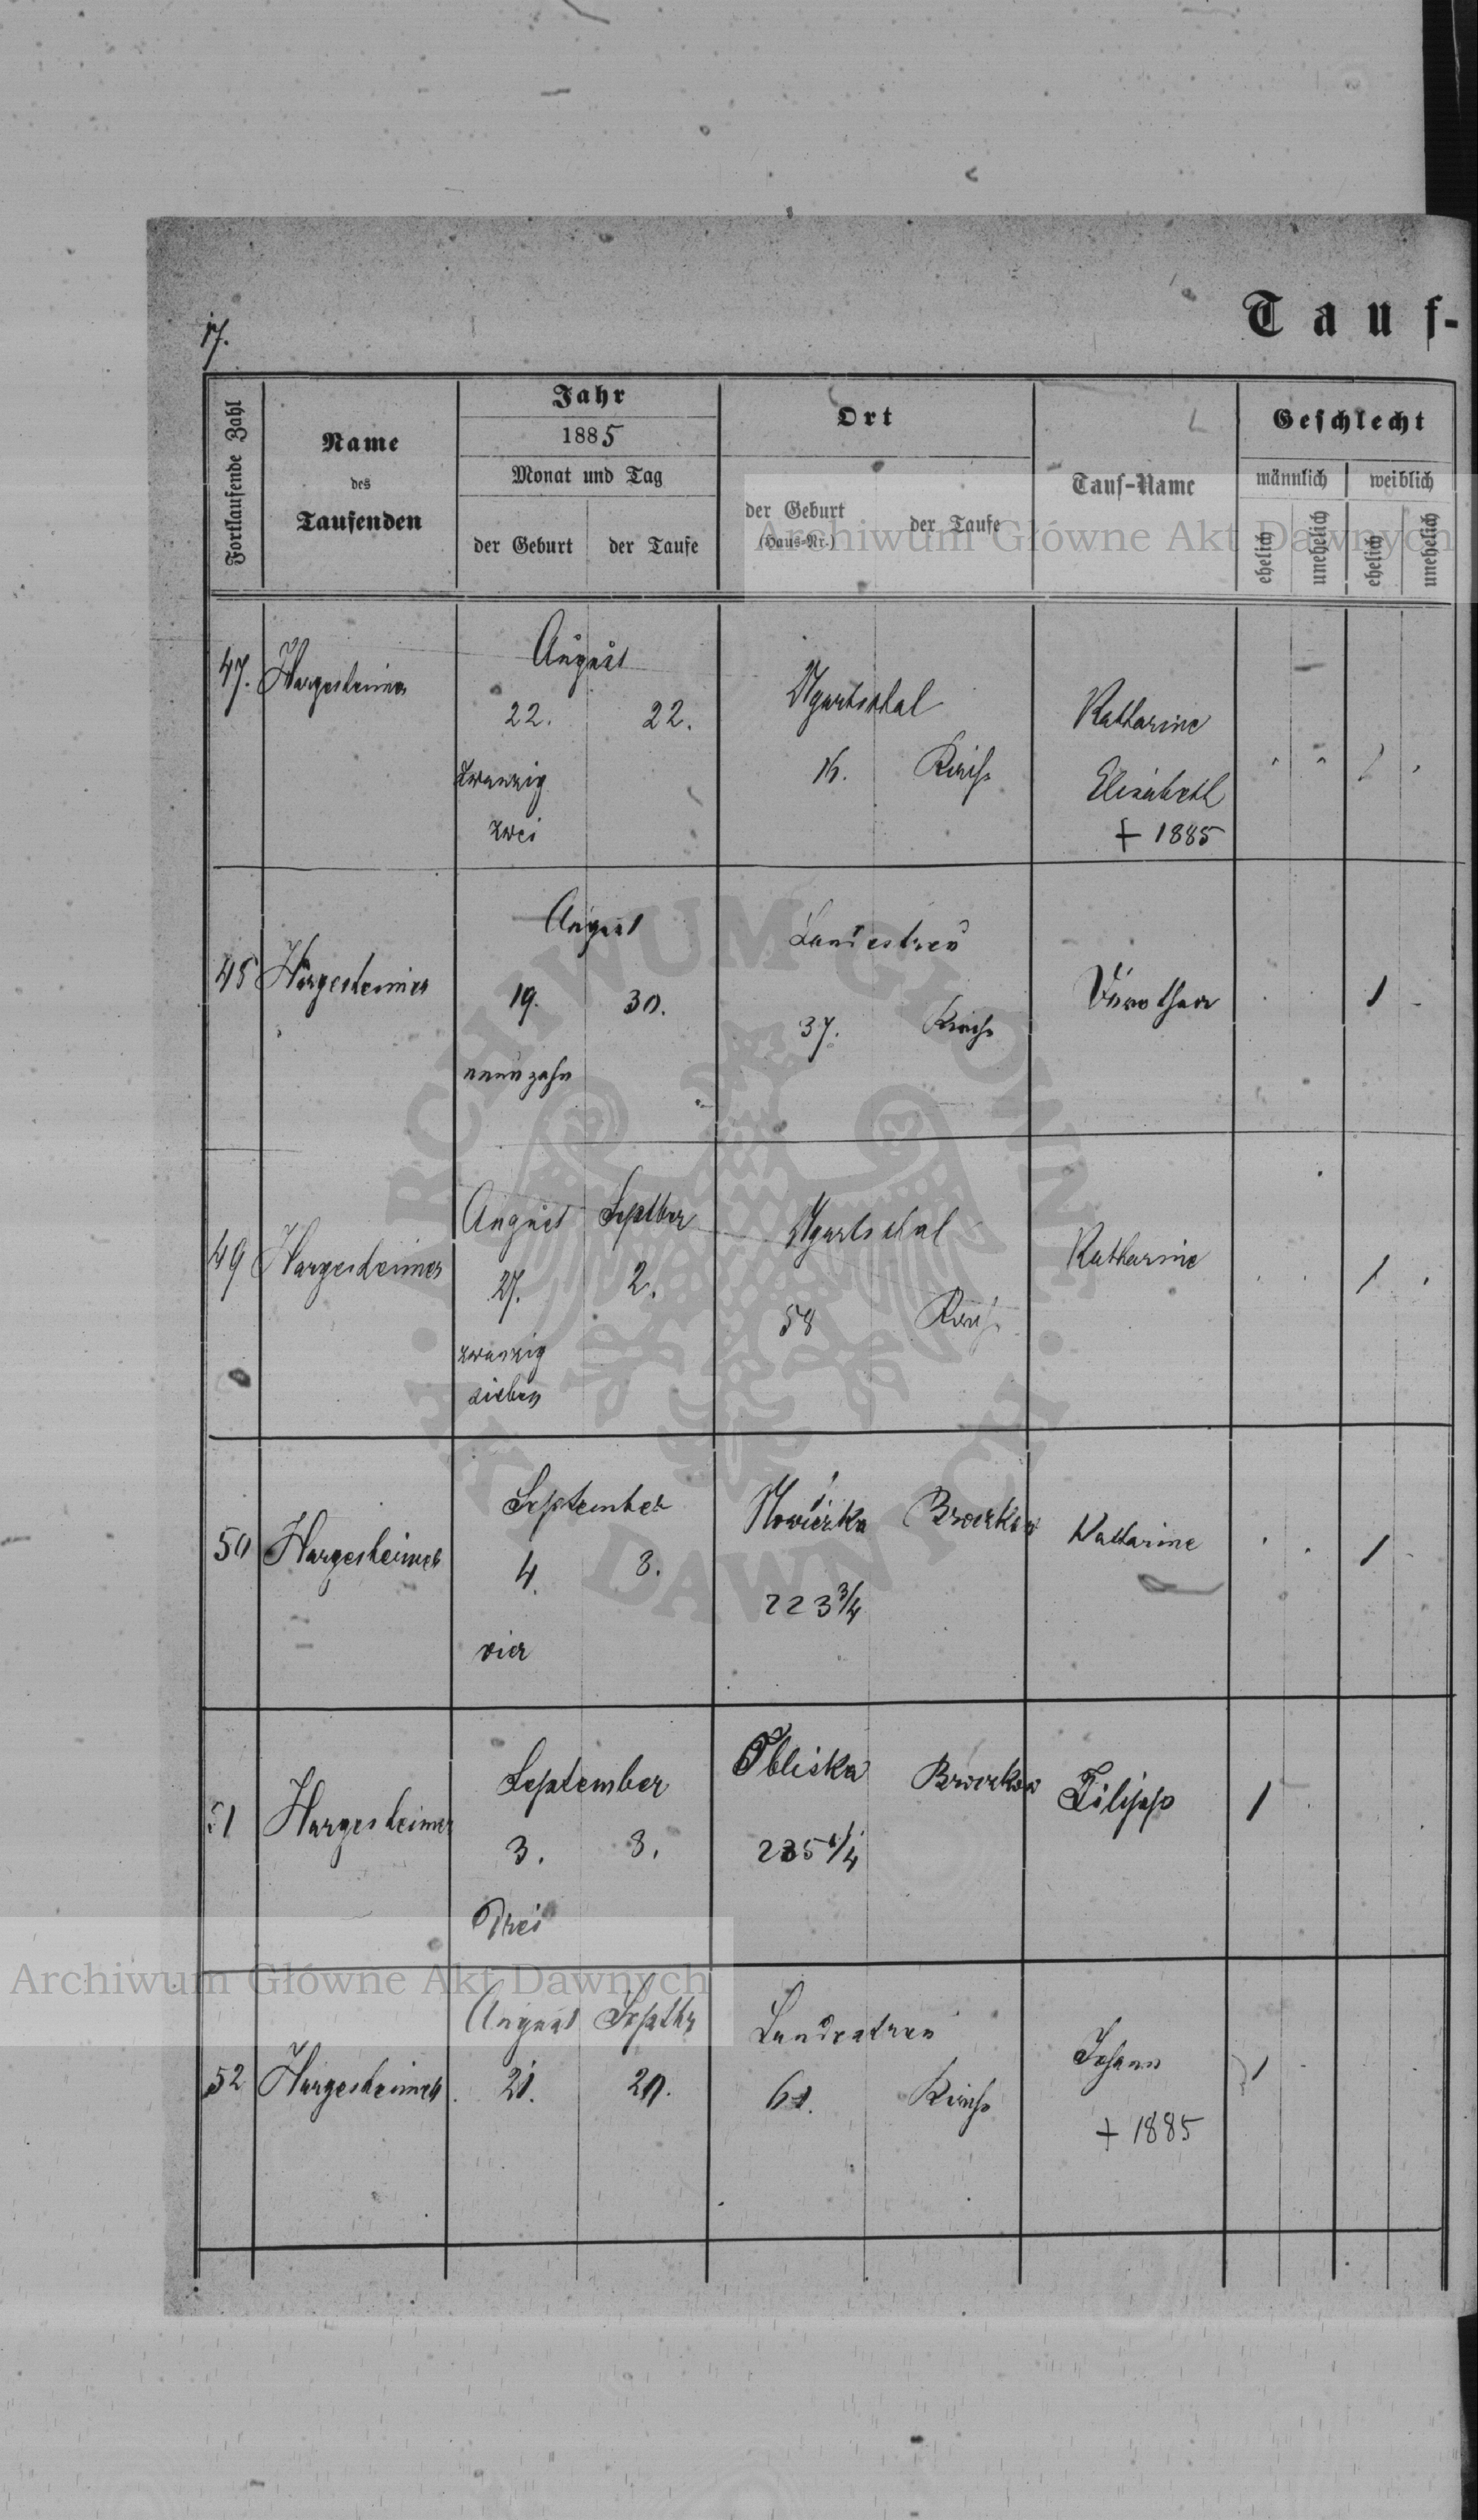 17.
Tauf-
Fortlaufende Zahl
Name
des
Taufenden
Jahr
1885
Monat und Tag
der Geburt
der Taufe
Ort
der Geburt
(Haus-Nr.)
der Taufe
Tauf-Name
Geschlecht
männlich
weiblich
ehelich
unehelich
ehelich
unehelich
Archiwum Główne Akt Dawnych
47. Hargesheimer
August
22. 22.
zwanzig
zwei
Ugartsthal
16. Kirche
Katharine
Elisabeth
+ 1885
48 Hargesheimer
August
19. 30.
neunzehn
Landestreu
37. Kirche
Dorothea
1
49 Hargesheimer
August Septber
27. 2.
zwanzig
sieben
Ugartsthal
58 Kirche
Katharine
1
50 Hargesheimer
September
4. 8.
vier
Nowiczka Broczkow
223 3/4
Katharine
1
51 Hargesheimer
September
3. 8.
Drei
Obliska Broczkow
1/4
Filipp
1
52 Hargesheimer
August Septbr
21. 20.
Landestreu
61. Kirche
Johann
+ 1885
1
ARCHIWUM GŁÓWNE
AKT DAWNYCH
Archiwum Główne Akt Dawnych